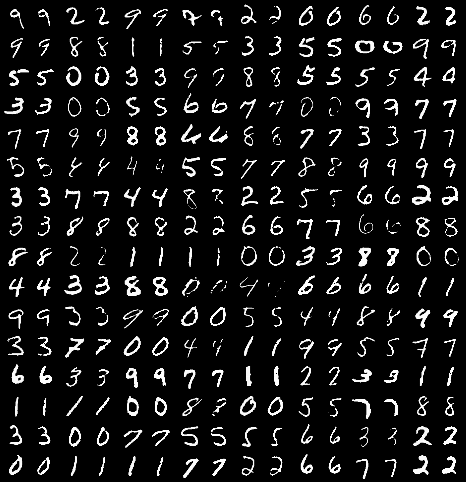 9 9 2 2 9 9 7 7 2 2 0 0 6 6 2 2
9 9 8 8 1 1 5 5 3 3 5 5 0 0 9 9
5 5 0 0 3 3 9 9 8 8 5 5 5 5 4 4
3 3 0 0 5 5 6 6 7 7 0 0 9 9 7 7
7 7 9 9 8 8 6 6 8 8 7 7 3 3 7 7
5 5 4 4 4 4 5 5 7 7 8 8 9 9 9 9
3 3 7 7 4 4 8 8 2 2 5 5 6 6 2 2
3 3 8 8 8 8 2 2 6 6 7 7 6 6 8 8
8 8 2 2 1 1 1 1 0 0 3 3 8 8 0 0
4 4 3 3 8 8 0 0 4 6 6 6 6 1 1
9 9 3 3 9 9 0 0 5 5 4 4 8 8 9 9
3 3 7 7 0 0 4 4 1 1 9 9 5 5 7 7
6 6 3 3 9 9 7 7 1 1 2 2 3 3 1 1
1 1 1 1 0 0 8 8 0 0 5 5 7 7 8 8
3 3 0 0 7 7 5 5 5 5 6 6 3 3 2 2
0 0 1 1 1 1 7 7 2 2 6 6 7 7 2 2